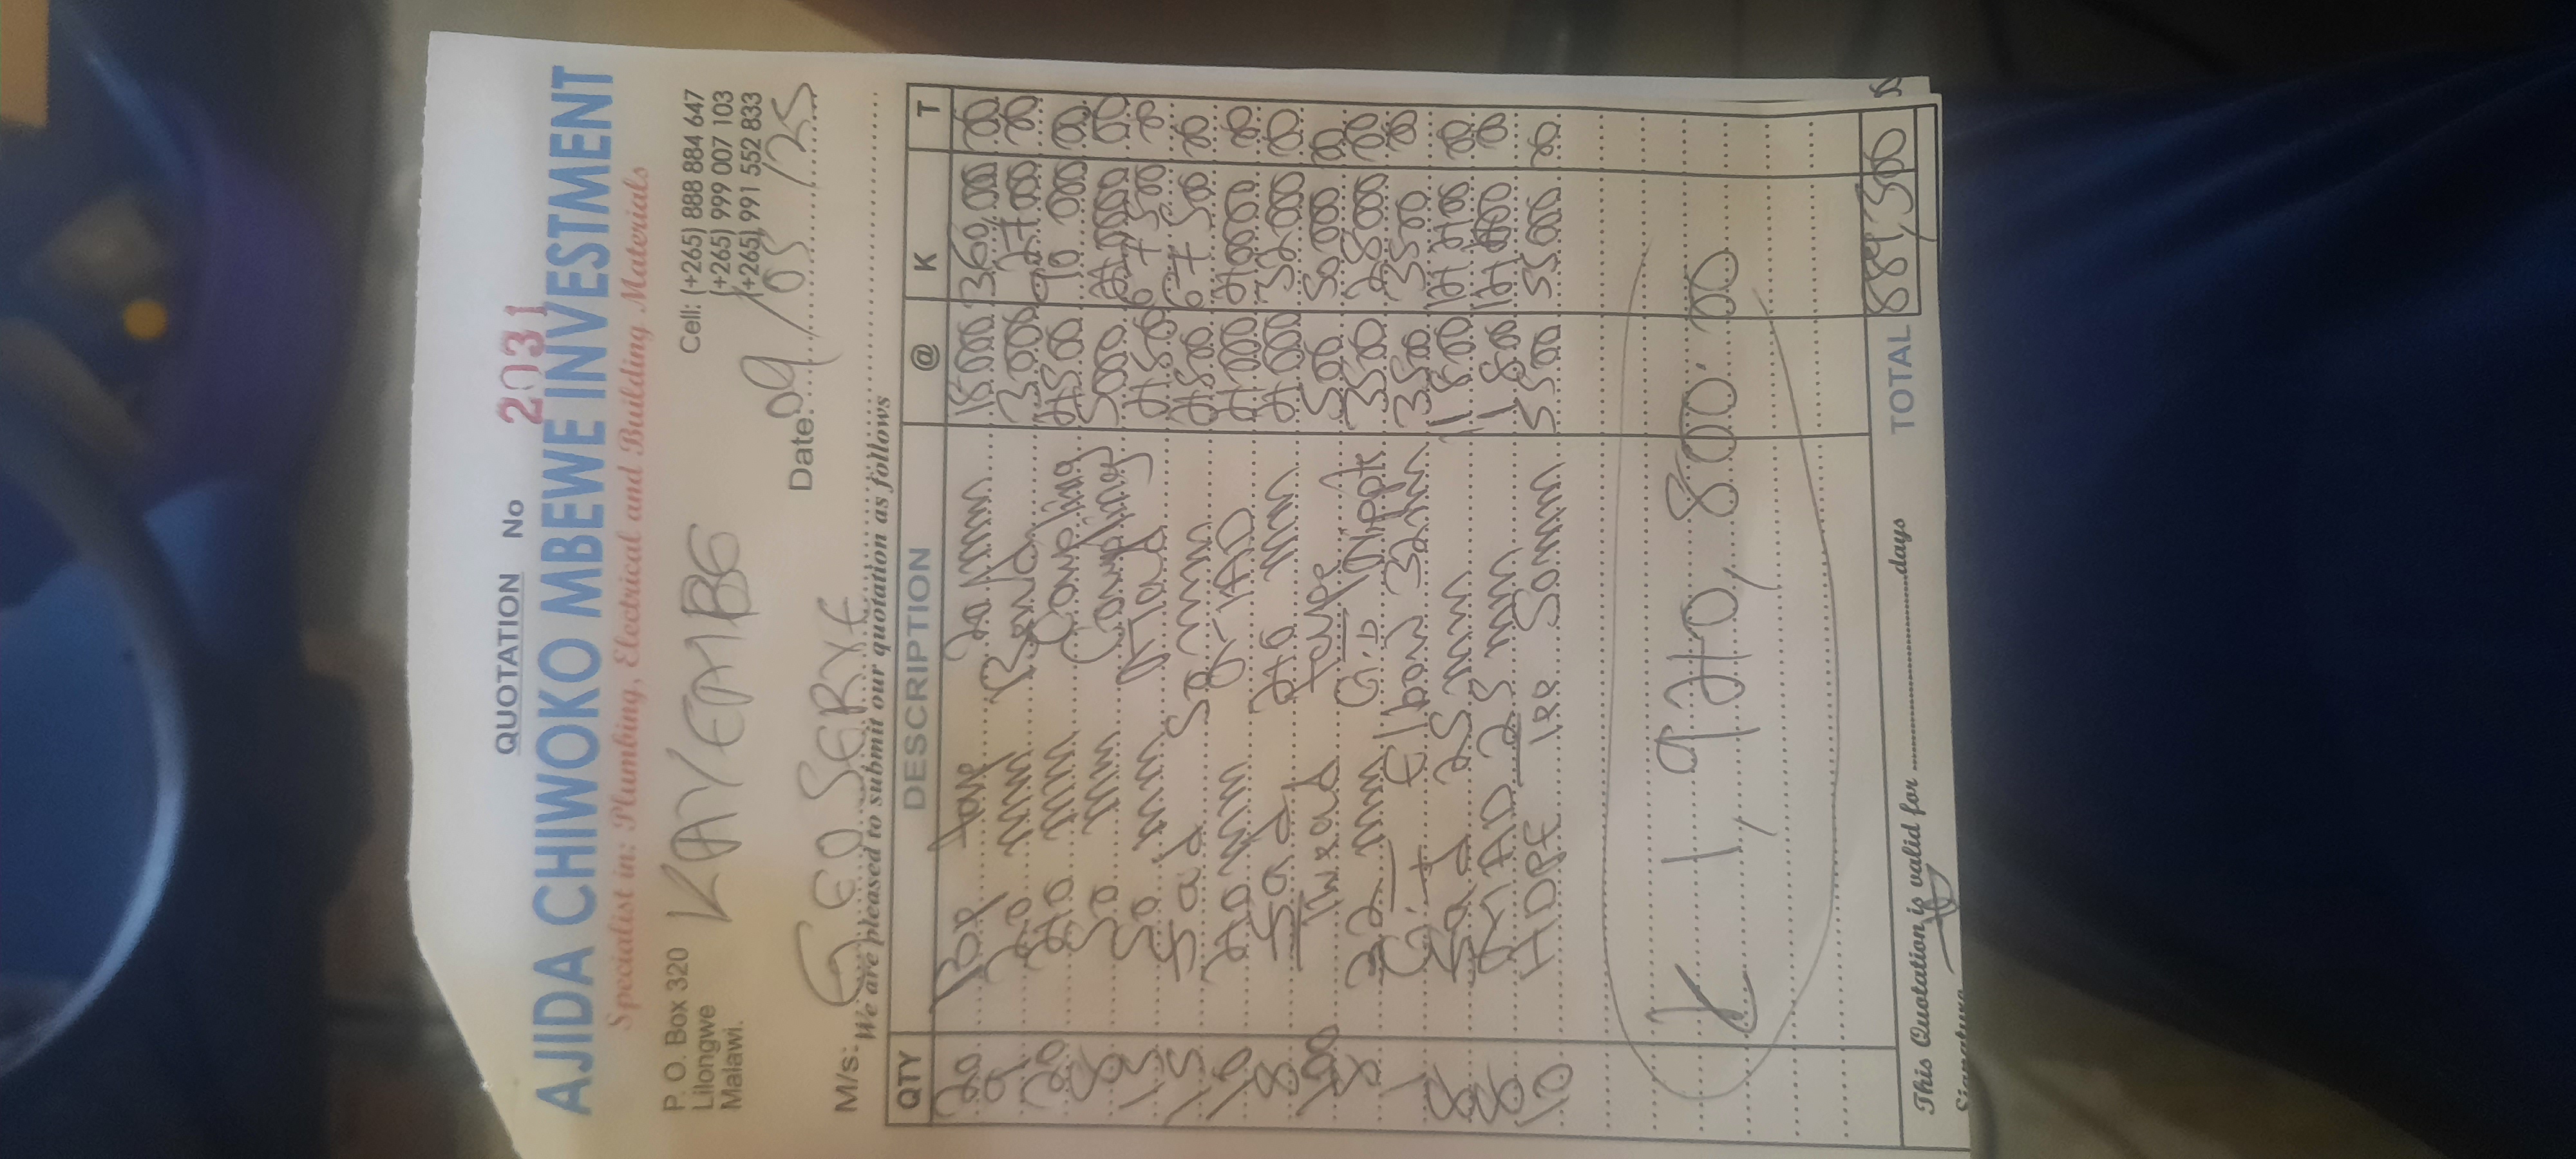 QUOTATION No 2031
AJIDA CHIWOKO MBEWE INVESTMENT
Specialist in: Plumbing, Electrical and Building Materials
P. O. Box 320
Lilongwe
Malawi.
KAYEMBE
Cell: (+265) 888 884 647
(+265) 999 007 103
(+265) 991 552 833
Date: 09/05/25
M/s: GEOSERVE
We are pleased to submit our quotation as follows
QTY DESCRIPTION @ K T
20 Bp tape 20mm 18000 360,000 00
9 20 mm Bend 3000 27000 00
20 40 mm Coupling 4500 90 000 00
8 50 mm Coupling 5000 40000 00
15 50 mm Mad 4500 67 500 00
15 Fad 50 mm 4500 67 500 00
10 40mm MAD 4000 40000 00
8 Fad 40 mm 4000 32000 00
100 Thread tape 500 50000 00
8 32 mm G.I Nipple 3500 28000 00
1 G.I Elbow 32mm 3500 3500 00
8 Fad 25 mm 1800 14400 00
8 MAD 25 mm 1800 14400 00
10 HDPE Tee 50mm 5500 55000 00
K 1,940,800.00
This Quotation is valid for days
TOTAL 889,300 00
Signature